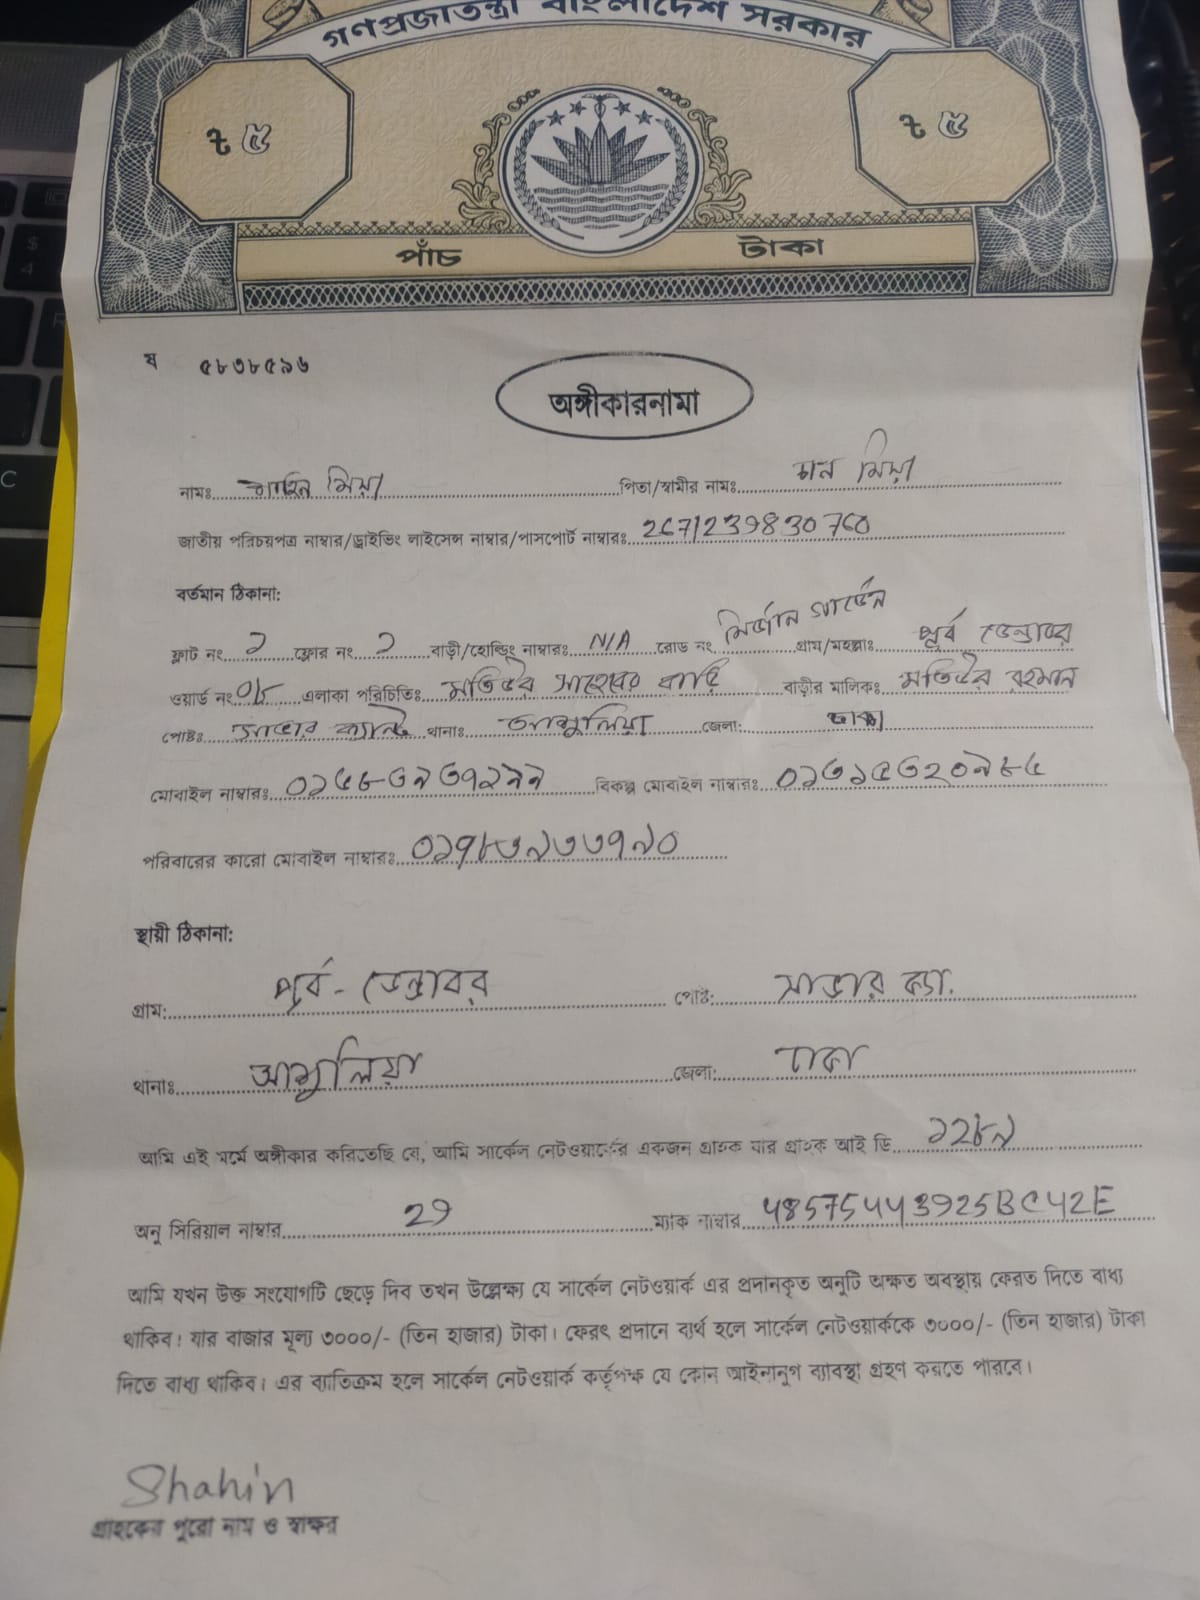 গণপ্রজাতন্ত্রী বাংলাদেশ সরকার
৳ ৫ ৳ ৫
পাঁচ টাকা
ষ ৫৮৩৮৫৯৬
অঙ্গীকারনামা
নামঃ শাহিন মিয়া পিতা/স্বামীর নামঃ চান মিয়া
জাতীয় পরিচয়পত্র নাম্বার/ড্রাইভিং লাইসেন্স নাম্বার/পাসপোর্ট নাম্বারঃ
বর্তমান ঠিকানা:
ফ্লাট নং ২ ফ্লোর নং ২ বাড়ী/হোল্ডিং নাম্বারঃ N/A রোড নং গার্ডেন গ্রাম/মহল্লাঃ পূর্ব ডেন্ডাবর
ওয়ার্ড নং ০৮ এলাকা পরিচিতিঃ মতিউর সাহেবের বাড়ি বাড়ীর মালিকঃ মতিউর রহমান
পোষ্টঃ সাভার ক্যান্ট থানাঃ আশুলিয়া জেলা: ঢাকা
মোবাইল নাম্বারঃ বিকল্প মোবাইল নাম্বারঃ
পরিবারের কারো মোবাইল নাম্বারঃ
স্থায়ী ঠিকানা:
গ্রাম: পূর্ব-ডেন্ডাবর পোষ্ট: সাভার ক্যা.
থানাঃ আশুলিয়া জেলা: ঢাকা
আমি এই মর্মে অঙ্গীকার করিতেছি যে, আমি সার্কেল নেটওয়ার্কের একজন গ্রাহক যার গ্রাহক আই ডি
অনু সিরিয়াল নাম্বার 29 ম্যাক নাম্বার 48575443925BC42E
আমি যখন উক্ত সংযোগটি ছেড়ে দিব তখন উল্লেক্ষ্য যে সার্কেল নেটওয়ার্ক এর প্রদানকৃত অনুটি অক্ষত অবস্থায় ফেরত দিতে বাধ্য
থাকিব। যার বাজার মূল্য ৩০০০/- (তিন হাজার) টাকা। ফেরৎ প্রদানে ব্যর্থ হলে সার্কেল নেটওয়ার্ককে ৩০০০/- (তিন হাজার) টাকা
দিতে বাধ্য থাকিব। এর ব্যতিক্রম হলে সার্কেল নেটওয়ার্ক কর্তৃপক্ষ যে কোন আইনানুগ ব্যাবস্থা গ্রহণ করতে পারবে।
Shahin
গ্রাহকের পুরো নাম ও স্বাক্ষর